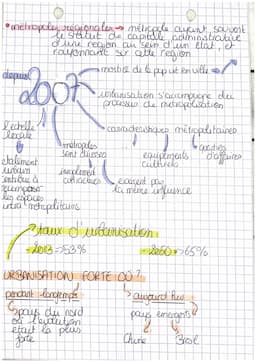 • métropoles régionales → métropole ayant souvent
le statut de capitale administrative
d'une région au sein d'un état, et
rayonnant sur cette région
depuis
2007
moitié de la pop vit en ville
urbanisation s'accompagne du
processus de métropolisation
caractéristiques métropolitaines
à l'échelle
locale
métropoles
sont
équipements
culturels
quartiers
d'affaires
étalement
urbain
attractives
exercent pas
la même influence
les espaces
intra métropolitains
taux d'urbanisation
- 2013 => 53%
- 2050 => 65%
URBANISATION FORTE OÙ ?
pendant longtemps
aujourd'hui
pays du nord
où l'évolution
était la plus
forte
pays émergents
Chine
Brésil